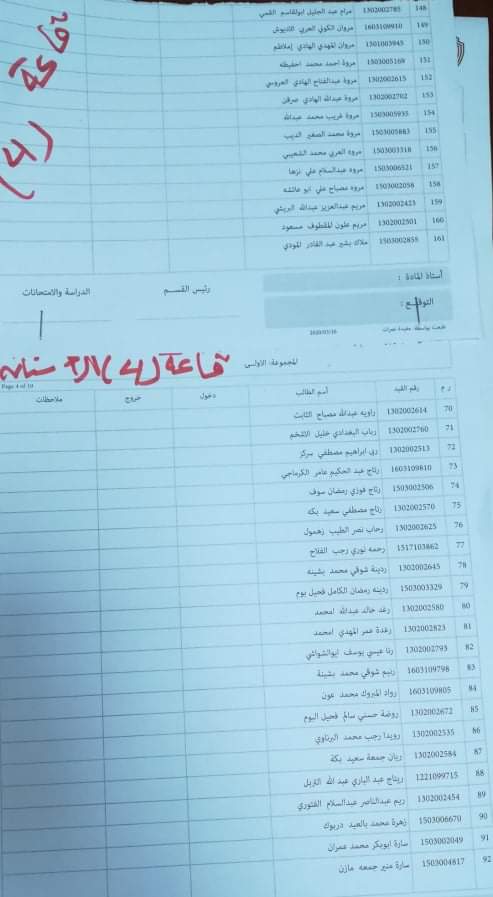 قاعة (4)
148 1302002785 مرام عبد الجليل ابوالقاسم القمي
149 1603109910 مروان الكوني العربي
150 1301003945 مروان المهدي الهادي
151 1503005169 مروة احمد محمد احفيظه
152 1302002615 مروة عبدالفتاح الهادي العروسي
153 1302002702 مروة عبدالله الهادي صرقن
154 1503005935 مروة غريب محمد عبدالله
155 1503005883 مروة محمد الصغير الديب
156 1503003318 مروه العربي محمد الشعيبي
157 1503006521 مروه عبدالسلام علي نزها
158 1503002058 مروه مصباح علي ابو عائشه
159 1302002423 مريم عبدالعزيز عبدالله البريشي
160 1302002501 مريم علون المقطوف مسعود
161 1503002855 ملاك بشير عبد القادر المودي
أستاذ المادة :
رئيس القسم
الدراسة والامتحانات
التوقيع :
طبعت بواسطة
المجموعة: الاولى
قاعة (4)
Page 4 of 10
ر م رقم القيد أسم الطالب دخول خروج ملاحظات
70 1302002614 راويه عبدالله مصباح الثابت
71 1302002760 رباب البغدادي خليل الاشخم
72 1302002513 ربى ابراهيم مصطفي سركز
73 1603109810 رتاج عبد الحكيم عامر الكرماجي
74 1503002506 رتاج فوزي رمضان سوف
75 1302002570 رتاج مصطفي سعيد بكه
76 1302002625 رحاب نصر الطيب زهمول
77 1517103862 رحمه نوري رجب الفلاح
78 1302002645 ردينة شوقي محمد بشينه
79 1503003329 ردينه رمضان الكامل فحيل بوم
80 1302002580 رغد خالد عبدالله امحمد
81 1302002823 رغدة عمر المهدي امحمد
82 1302002793 رنا عيسي يوسف ابوالشواشي
83 1603109798 رنيم شوقي محمد بشينة
84 1603109805 رواد المبروك محمد عون
85 1302002672 روضة حسني سالم فحيل البوم
86 1302002535 رويدا رجب محمد البرناوي
87 1302002584 ريان جمعة سعيد بكة
88 1221099715 ريتاج عبد الباري عبد الله التريل
89 1302002454 ريم عبدالناصر عبدالسلام الفيتوري
90 1503006670 زهرة محمد بالعيد دربوك
91 1503002049 سارة ابوبكر محمد عمران
92 1503004817 سارة منير جمعه مازن